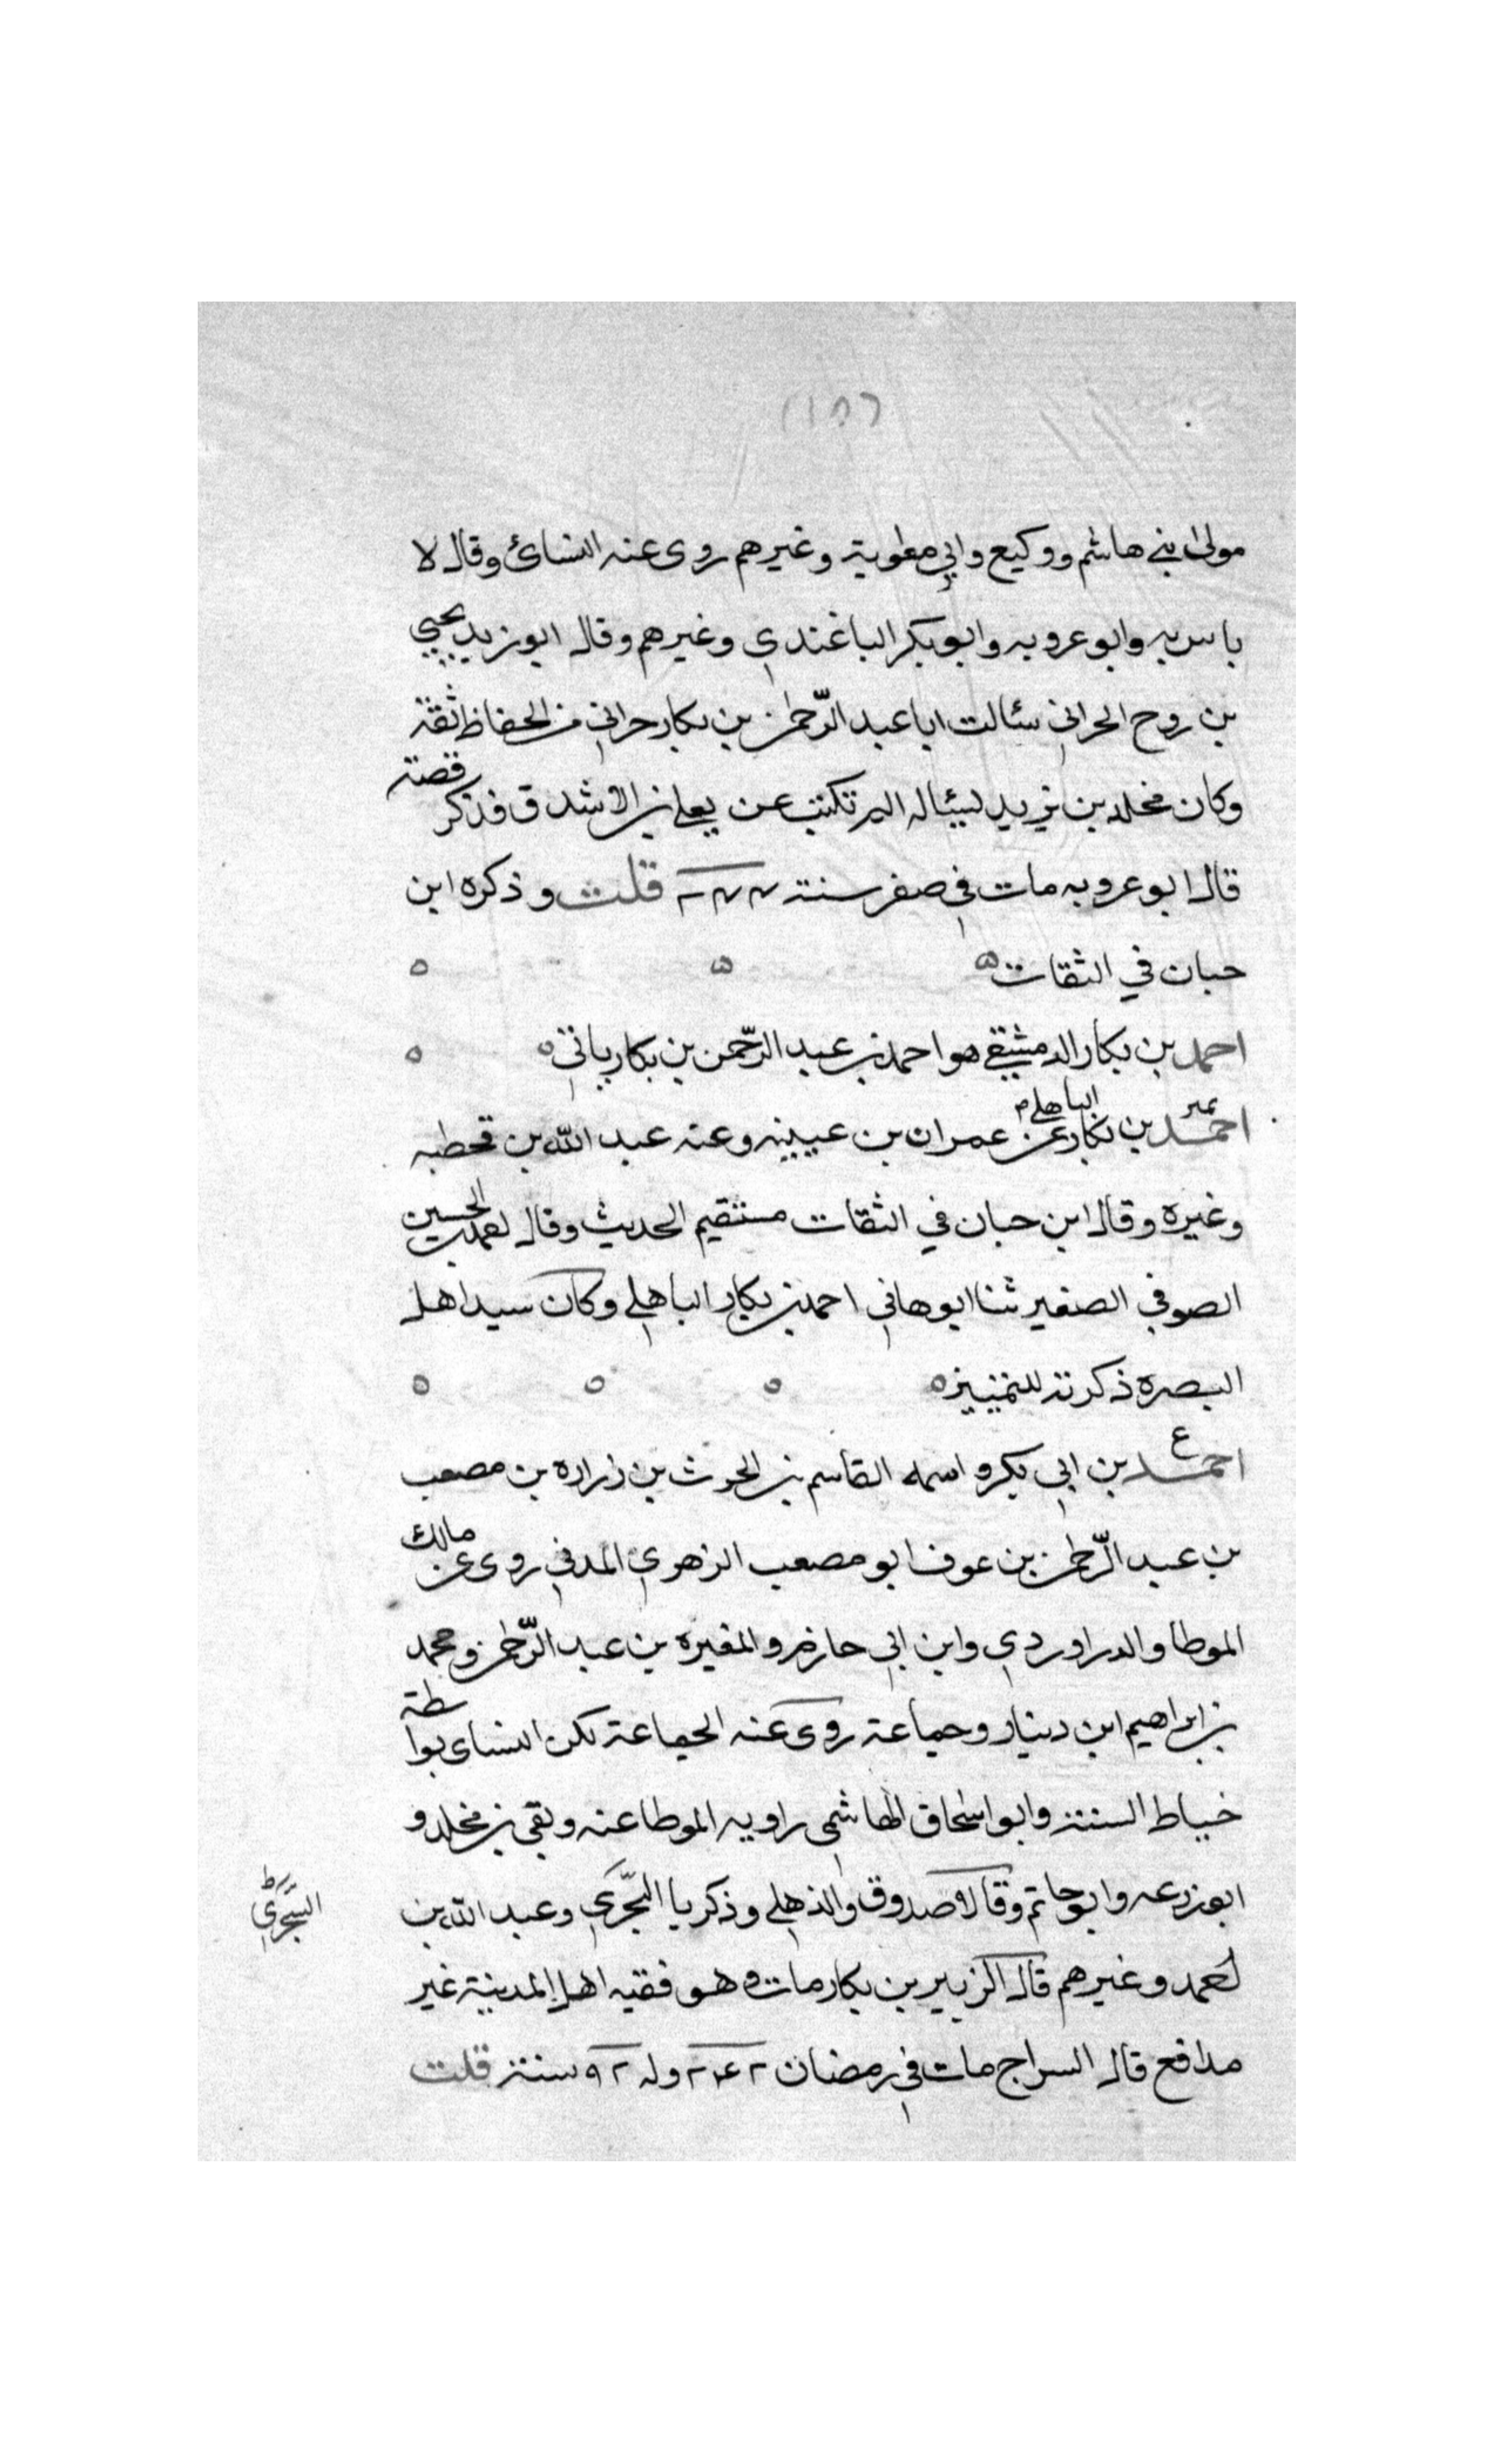 مولى بني هاشم ووكيع وابي معاوية وغيرهم روى عنه النسائ وقال لا
باس به وابو عروبه وابو بكر الباغندي وغيرهم وقال ابو زيد يحيى
بن روح الحراني سئالت ابا عبد الرّحمن بن بكار حراني من الحفاظ ثقة
وكان مخلد بن يزيد يسئاله الم تكتب عن يعلى بن الاشدق فذكر قصة
قال ابو عروبه مات في صفر سنة قلت وذكره ابن
حبان في الثقات
احمد بن بكار الدمشقي هو احمد بن عبد الرّحمن بن بكار ياتي
تمييز
احمد بن بكار الباهلي عن عمران بن عيينه وعنه عبد الله بن قحطبه
وغيره وقال ابن حبان في الثقات مستقيم الحديث وقال الحسين
الصوفي الصغير ثنا ابو هاني احمد بن بكار الباهلي وكان سيد اهل
البصره ذكرته للتمييز
ع
احمد بن ابي بكر واسمه القاسم بن الحرث بن زراره بن مصعب
بن عبد الرّحمن بن عوف ابو مصعب الزهري المدني روى عن مالك
الموطا والدراوردي وابن ابي حازم والمغيره بن عبد الرّحمن ومحمد
بن ابراهيم ابن دينار وجماعة روى عنه الجماعة لكن النساى بواسطة
خياط السنة وابو اسحاق الهاشمى راويه الموطا عنه وبقي بن مخلد و
ابو زرعه وابو حاتم وقالا صدوق والذهلي وذكريا السّجزي وعبد الله بن
السِّجزي
احمد وغيرهم قال الزبير بن بكار مات وهو فقيه اهل المدينة غير
مدافع قال السراج مات في رمضان ٢٤٢ وله ٩٢ سنة قلت